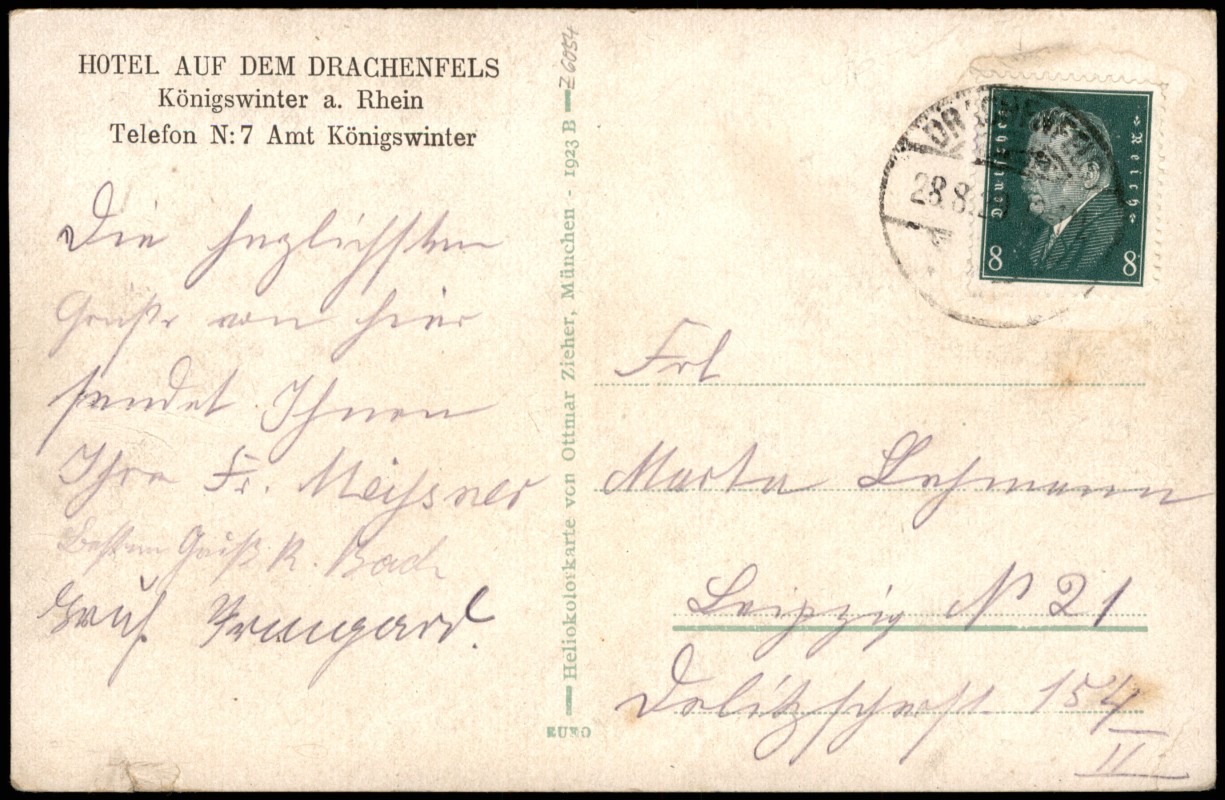 HOTEL AUF DEM DRACHENFELS
Königswinter a. Rhein
Telefon N: 7 Amt Königswinter
Die herzlichsten
Grüße von hier
sendet Ihnen
Ihre Fr. Meißner
Besten Gruß R. Bach
Gruß Irmgard.
Heliokolorkarte von Ottmar Zieher, München - 1923 B
Z 6054
EUKO
DRACHENFELS
28.8.
Deutsches Reich
8 8
Frl
Marta Lehmann
Leipzig N 21
Delitzscherst. 154
II